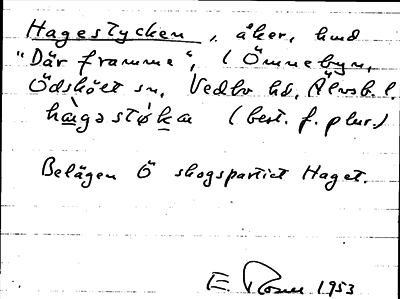 Hagestycken, åker, hmd
"Där framme", (Ömnebyn,
Ödskölt sn, Vedbo hd, Älvsb. l.
hàgəstỳka (best. f. plur.)
Belägen Ö skogspartiet Haget.
E Rosen 1953